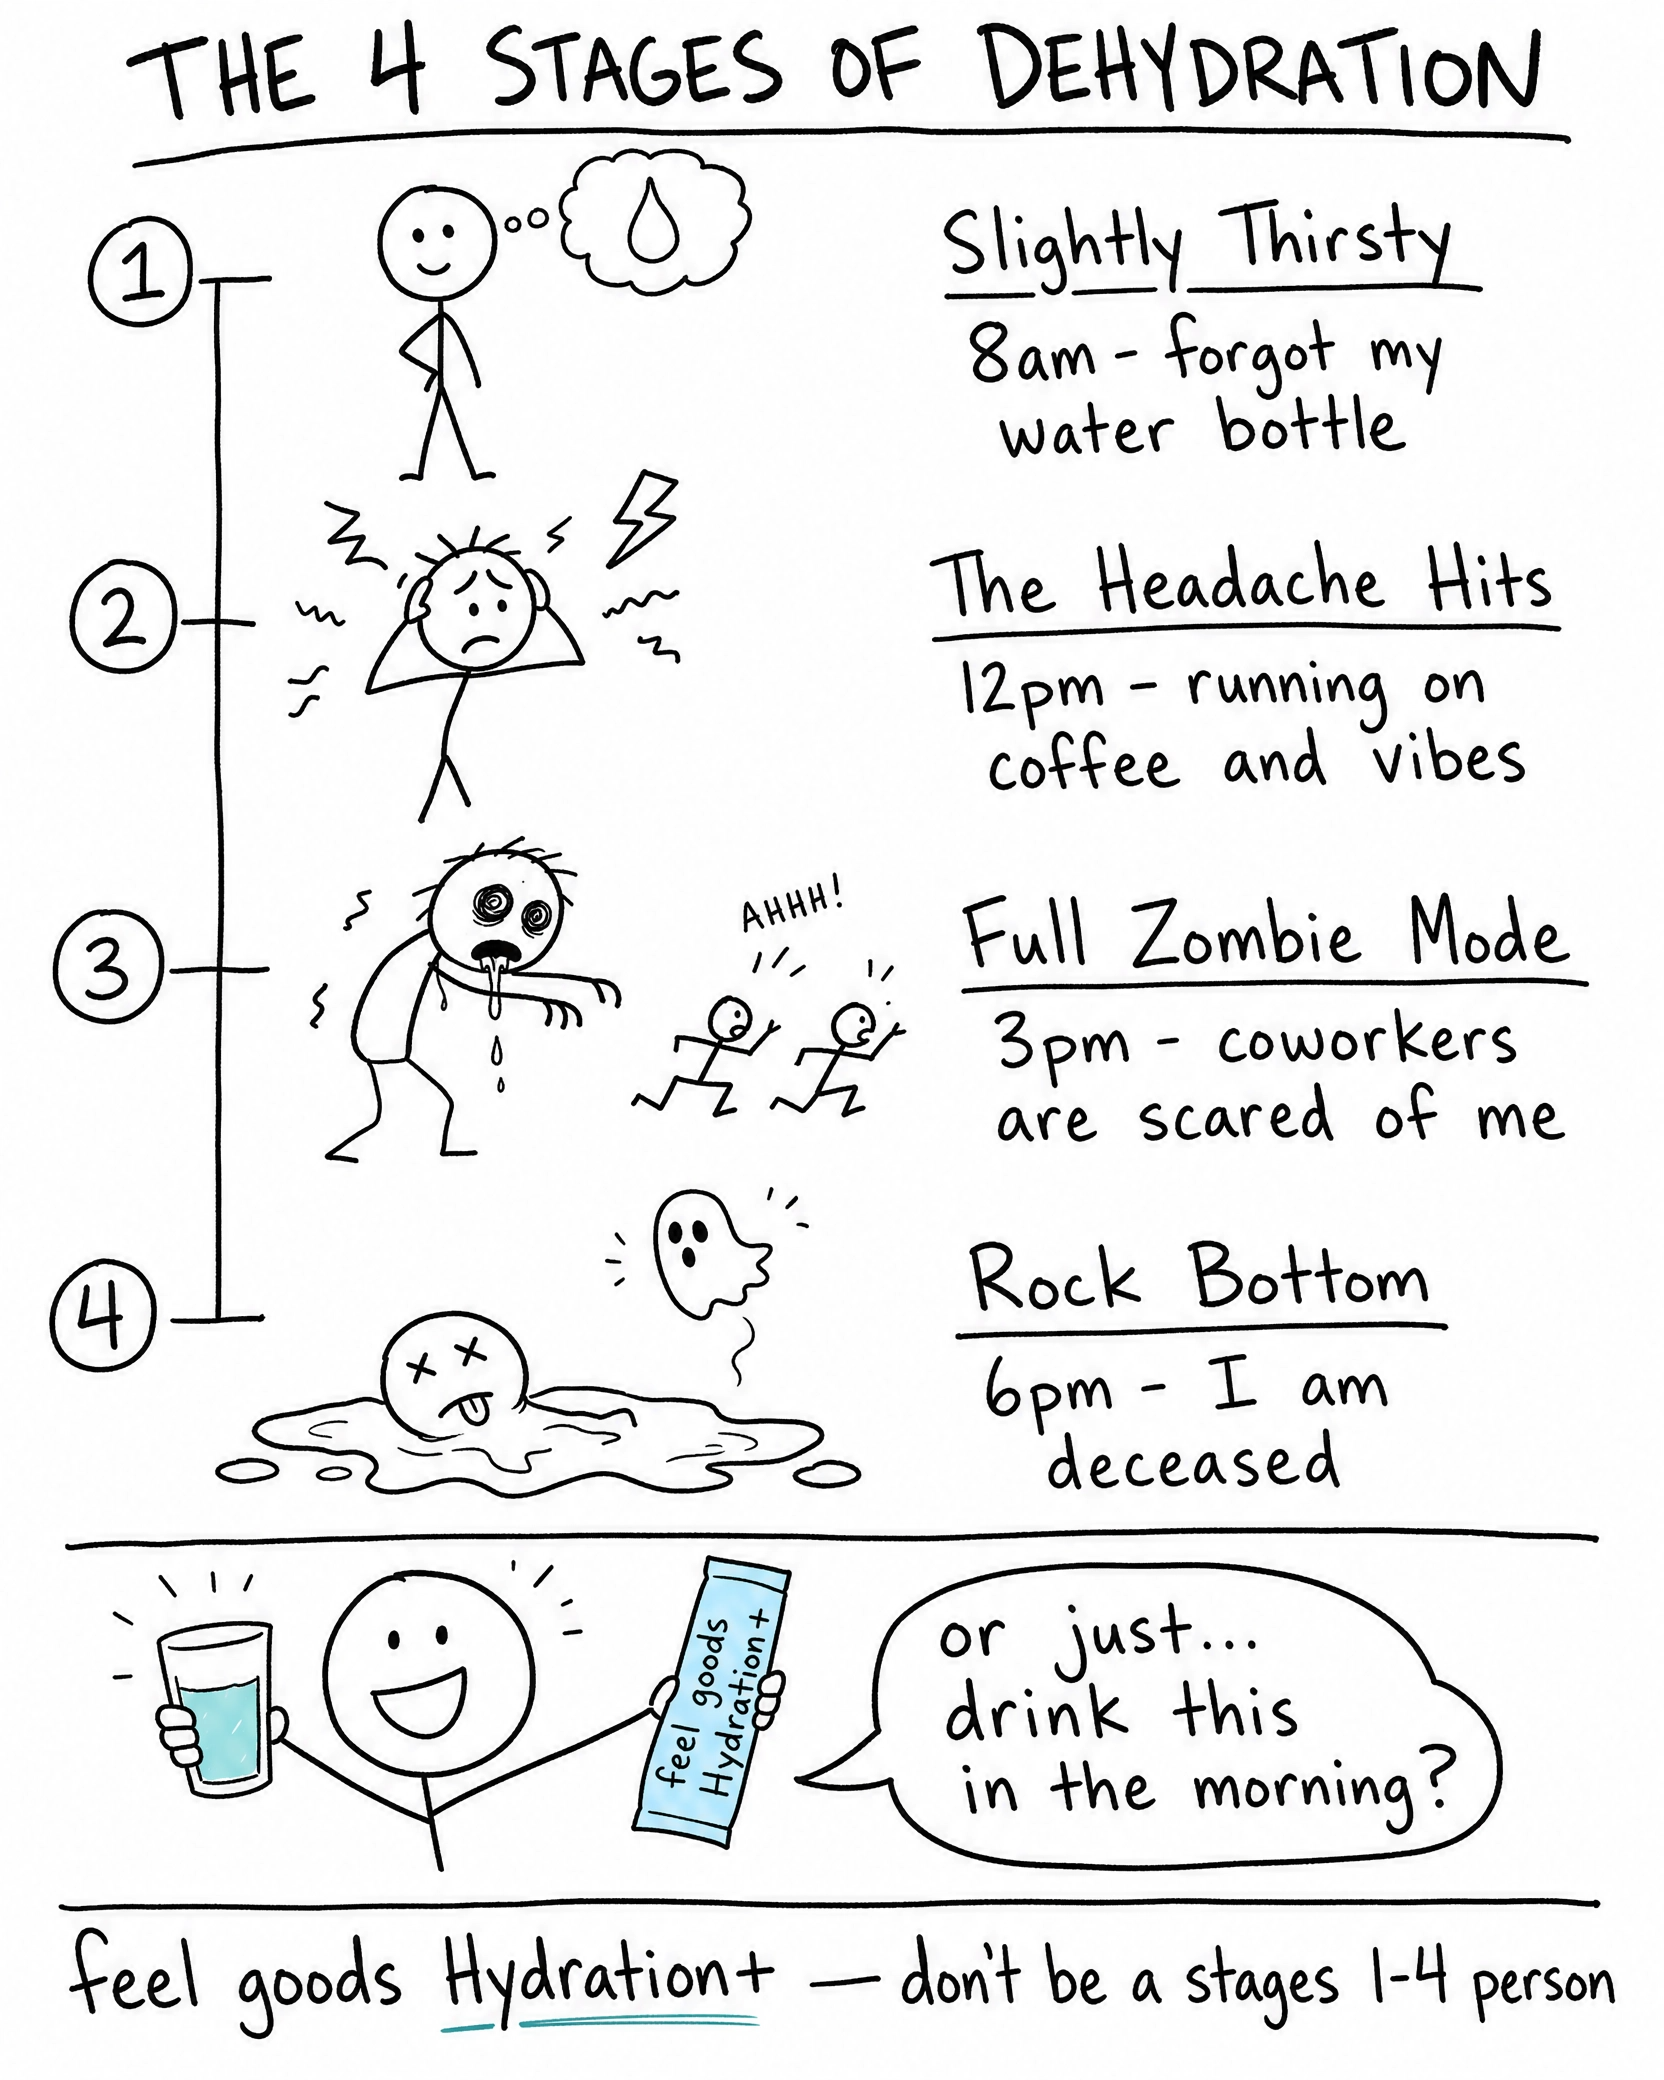 THE 4 STAGES OF DEHYDRATION
1
Slightly Thirsty
8am - forgot my
water bottle
2
The Headache Hits
12pm - running on
coffee and vibes
3
AHHH!
Full Zombie Mode
3pm - coworkers
are scared of me
4
Rock Bottom
6pm - I am
deceased
feel goods
Hydration+
or just...
drink this
in the morning?
feel goods Hydration+ — don't be a stages 1-4 person